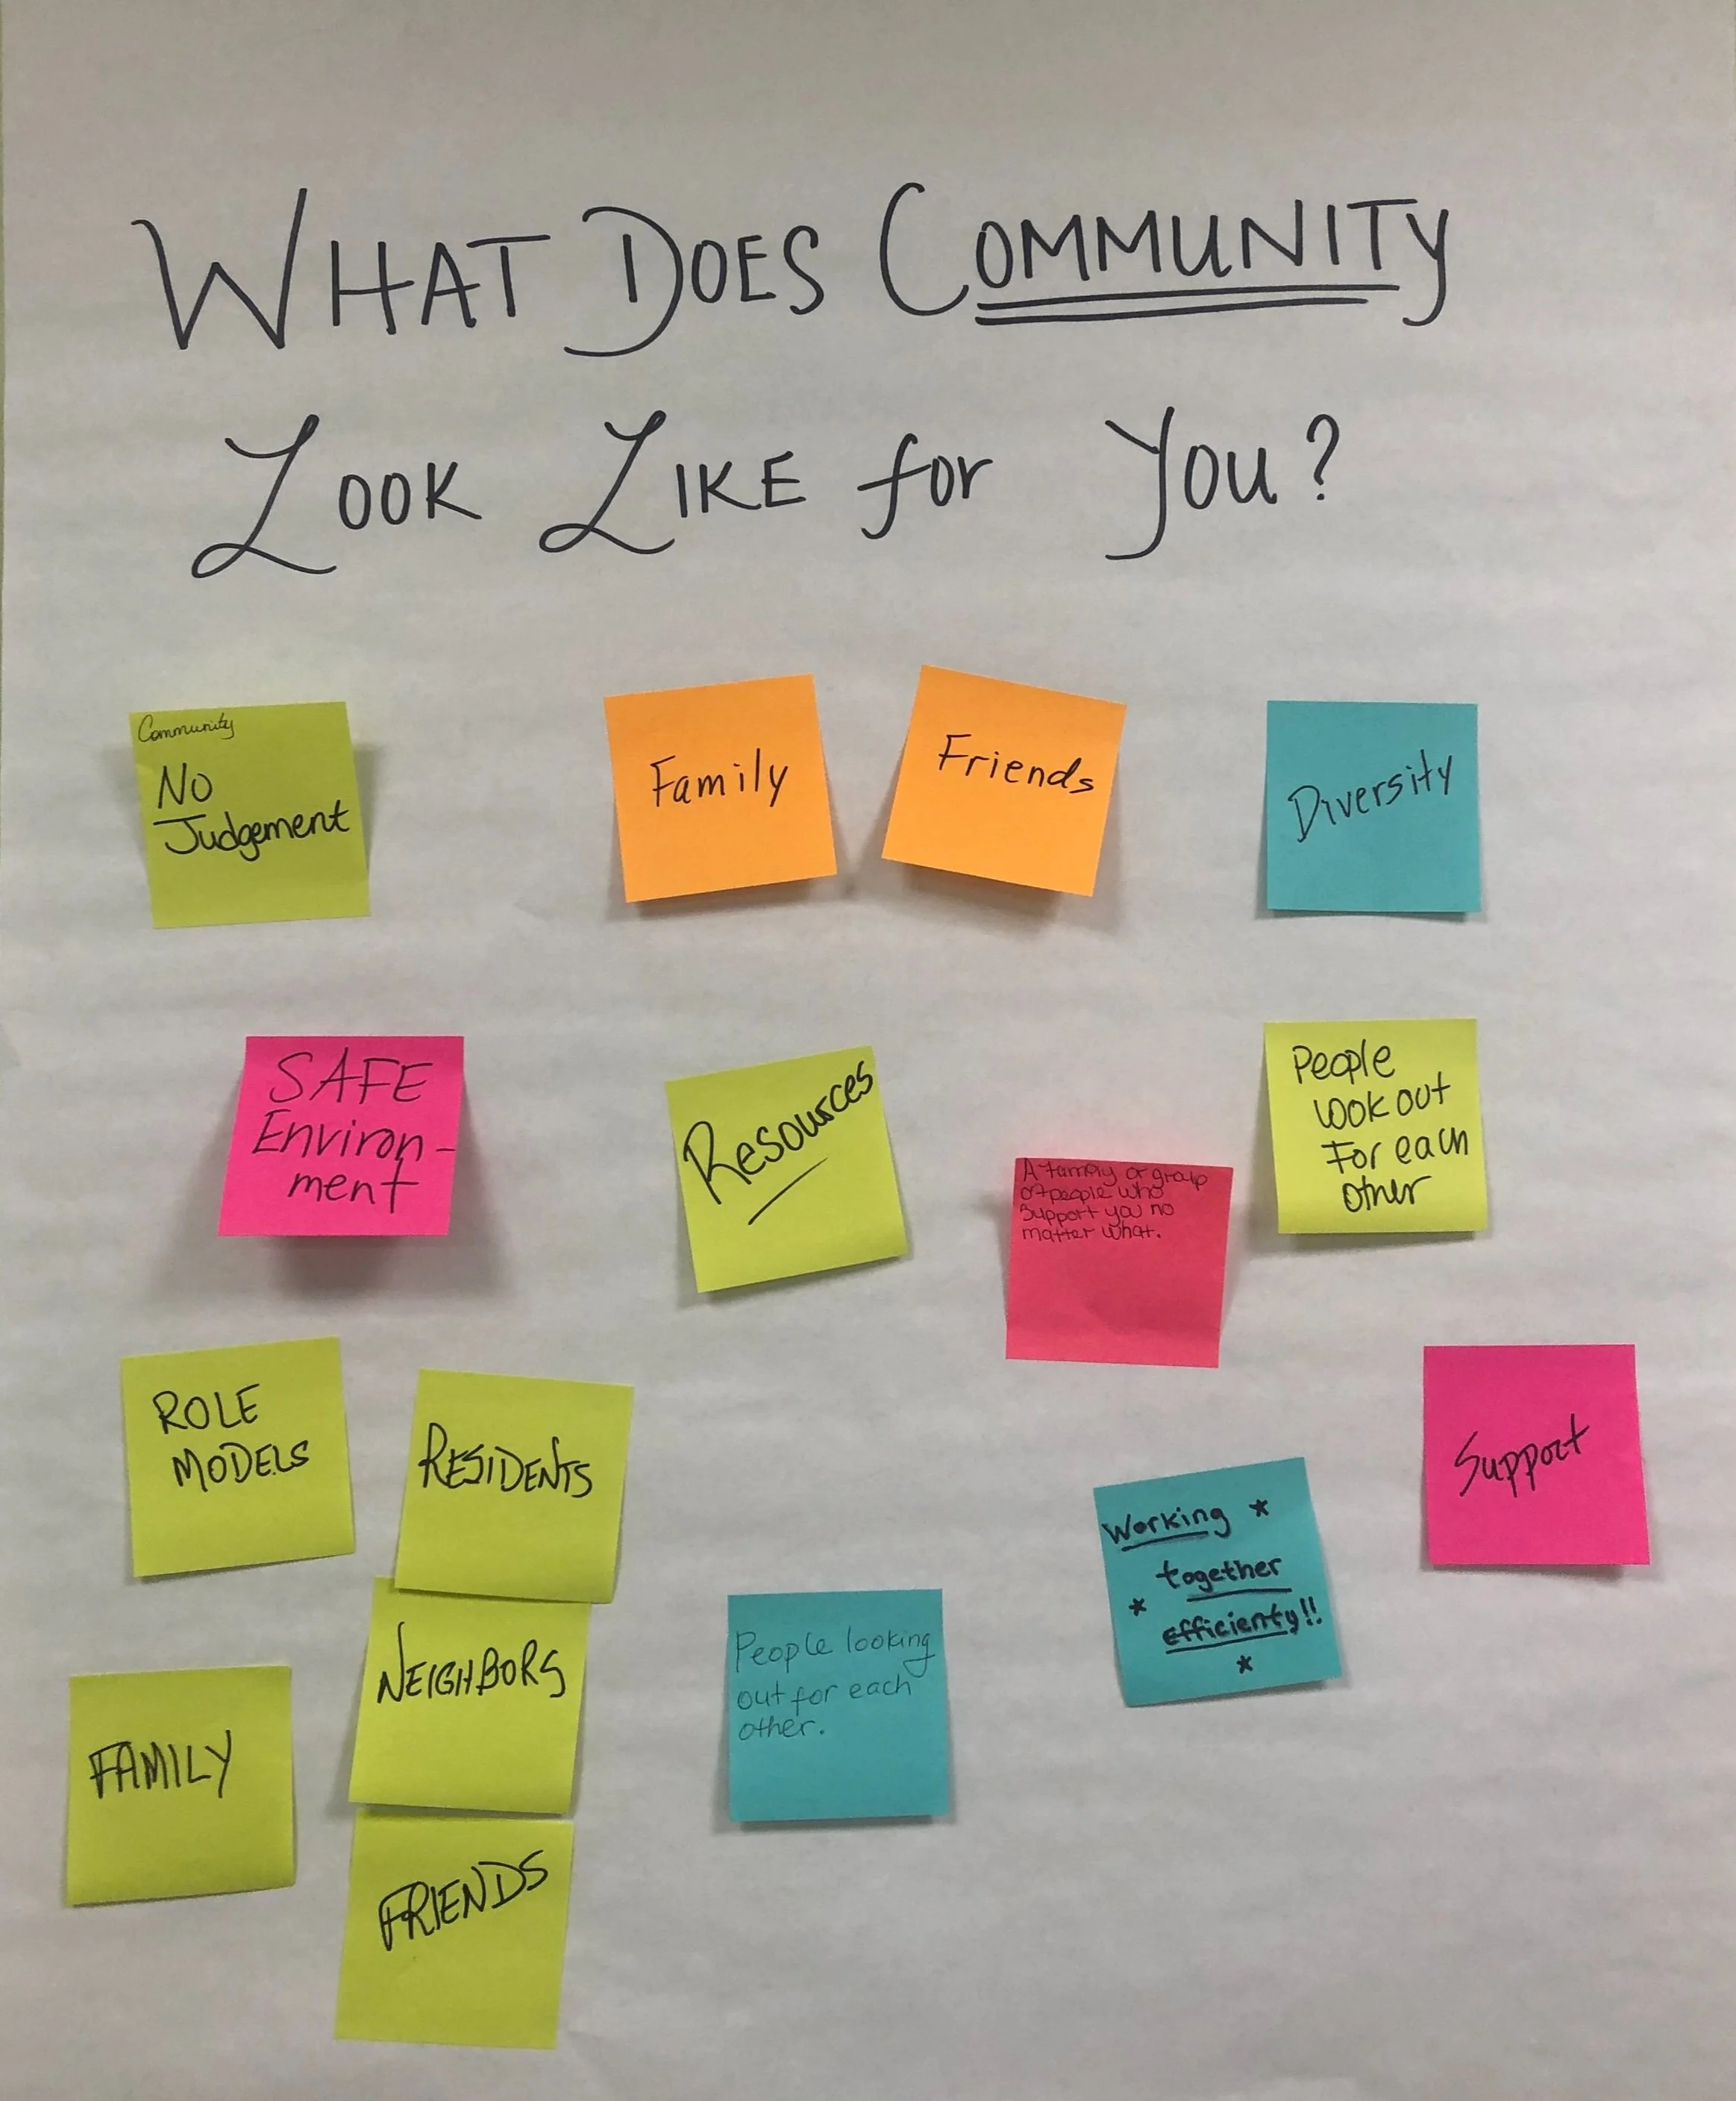 WHAT DOES COMMUNITY
LOOK LIKE for YOU?
Community
No
Judgement
Family
Friends
Diversity
SAFE
Environ-
ment
Resources
A family or group
of people who
support you no
matter what.
People
look out
For each
other
ROLE
MODELS
RESIDENTS
Support
Working *
together
* efficienty!!
*
NEIGHBORS
People looking
out for each
other.
FAMILY
FRIENDS